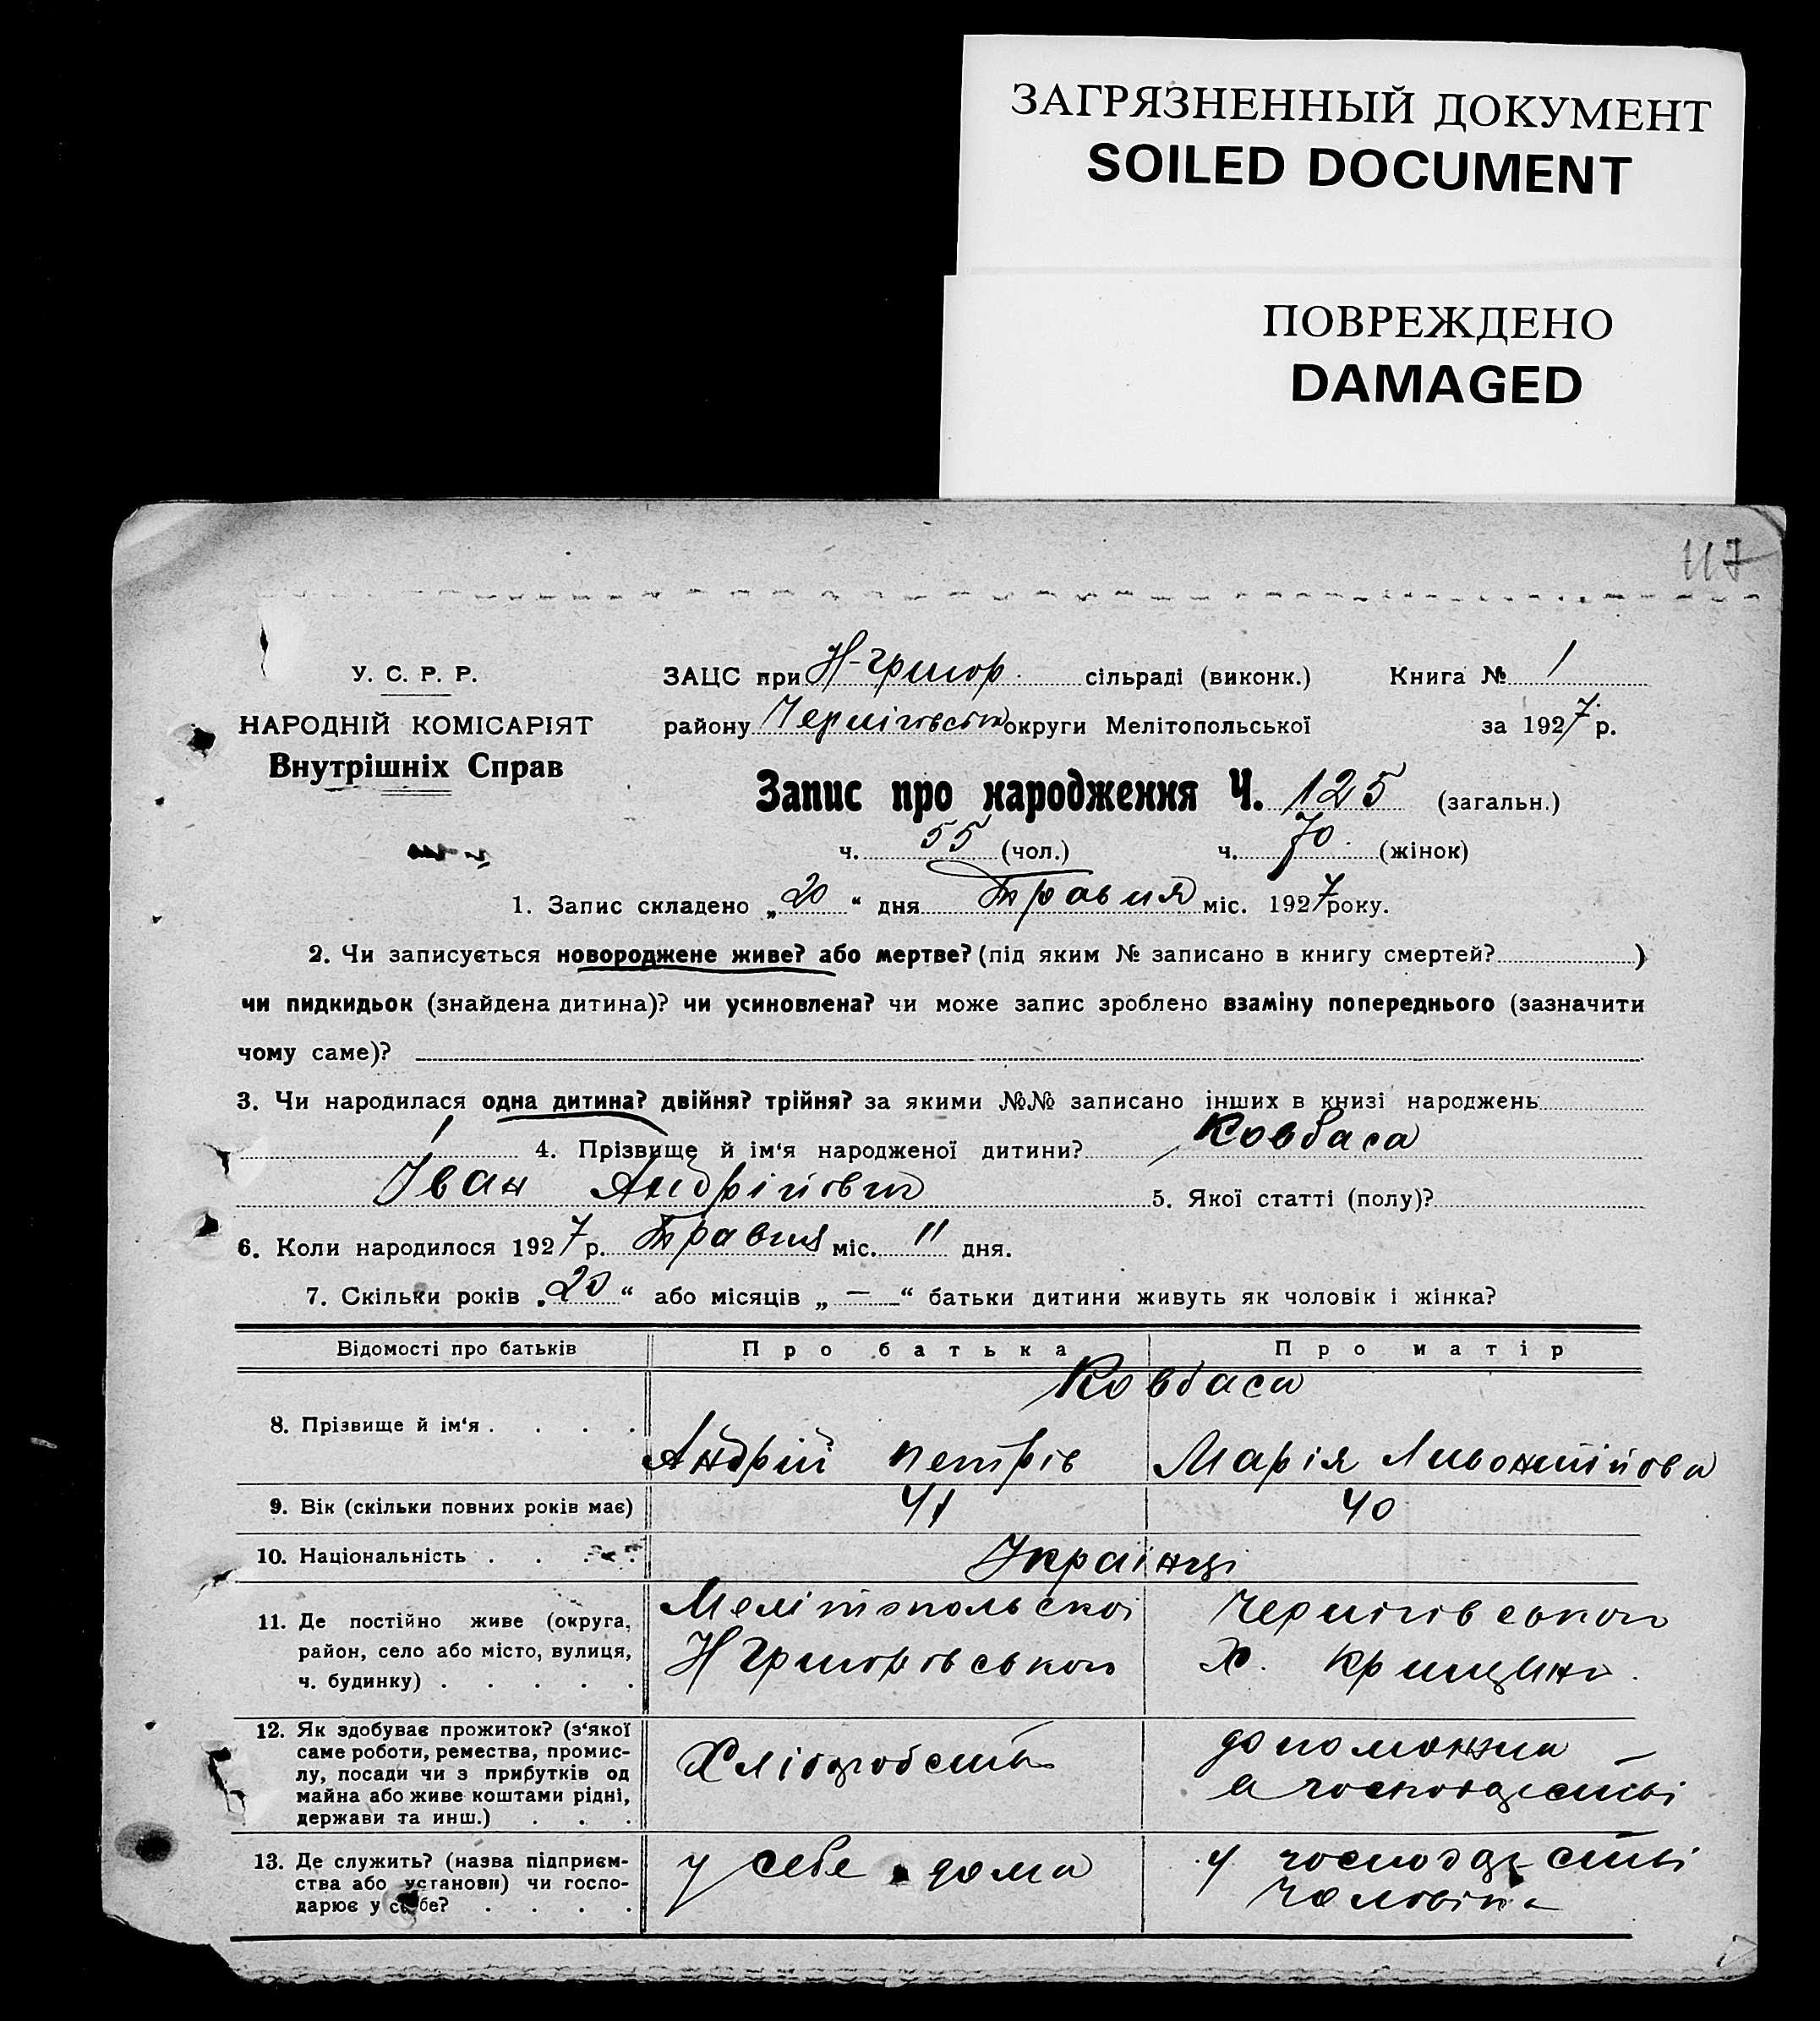 ЗАГРЯЗНЕННЫЙ ДОКУМЕНТ
SOILED DOCUMENT
ПОВРЕЖДЕНО
DAMAGED
117
У. С. Р. Р.
НАРОДНІЙ КОМІСАРІЯТ
Внутрішніх Справ
ЗАЦС при Н-Григор. сільраді (виконк.) Книга № 1
району Чернігівськ округи Мелітопольської за 1927 р.
Запис про народження Ч. 125 (загальн.)
ч. 55 (чол.) ч. 70 (жінок)
1. Запис складено „20“ дня Травня міс. 1927 року.
2. Чи записується новороджене живе? або мертве? (під яким № записано в книгу смертей? )
чи пидкидьок (знайдена дитина)? чи усиновлена? чи може запис зроблено взаміну попереднього (зазначити
чому саме)?
3. Чи народилася одна дитина? двійня? трійня? за якими №№ записано інших в книзі народжень
1 4. Прізвище й ім‘я народженої дитини? Ковбаса
Іван Андрійович 5. Якої статті (полу)?
6. Коли народилося 1927 р. Травня міс. 11 дня.
7. Скільки років „20“ або місяців „—“ батьки дитини живуть як чоловік і жінка?
Відомості про батьків Про батька Про матір
Ковбаса
8. Прізвище й ім‘я . . . . Андрій Петрів Марія
9. Вік (скільки повних років має) 41 40
10. Національність . . . . Українці
11. Де постійно живе (округа, Мелітопольскої Чернігівського
район, село або місто, вулиця, Н Григорівського х.
ч. будинку) . . . . .
12. Як здобуває прожиток? (з‘якої
саме роботи, ремества, промис-
лу, посади чи з прибутків од
майна або живе коштами рідні,
держави та инш.) . . .
Хліборобство
допоможна
в господарстві
13. Де служить? (назва підприєм-
ства або установи) чи госпо-
дарює у себе? . . . .
у себе дома
у господарстві
чоловіка